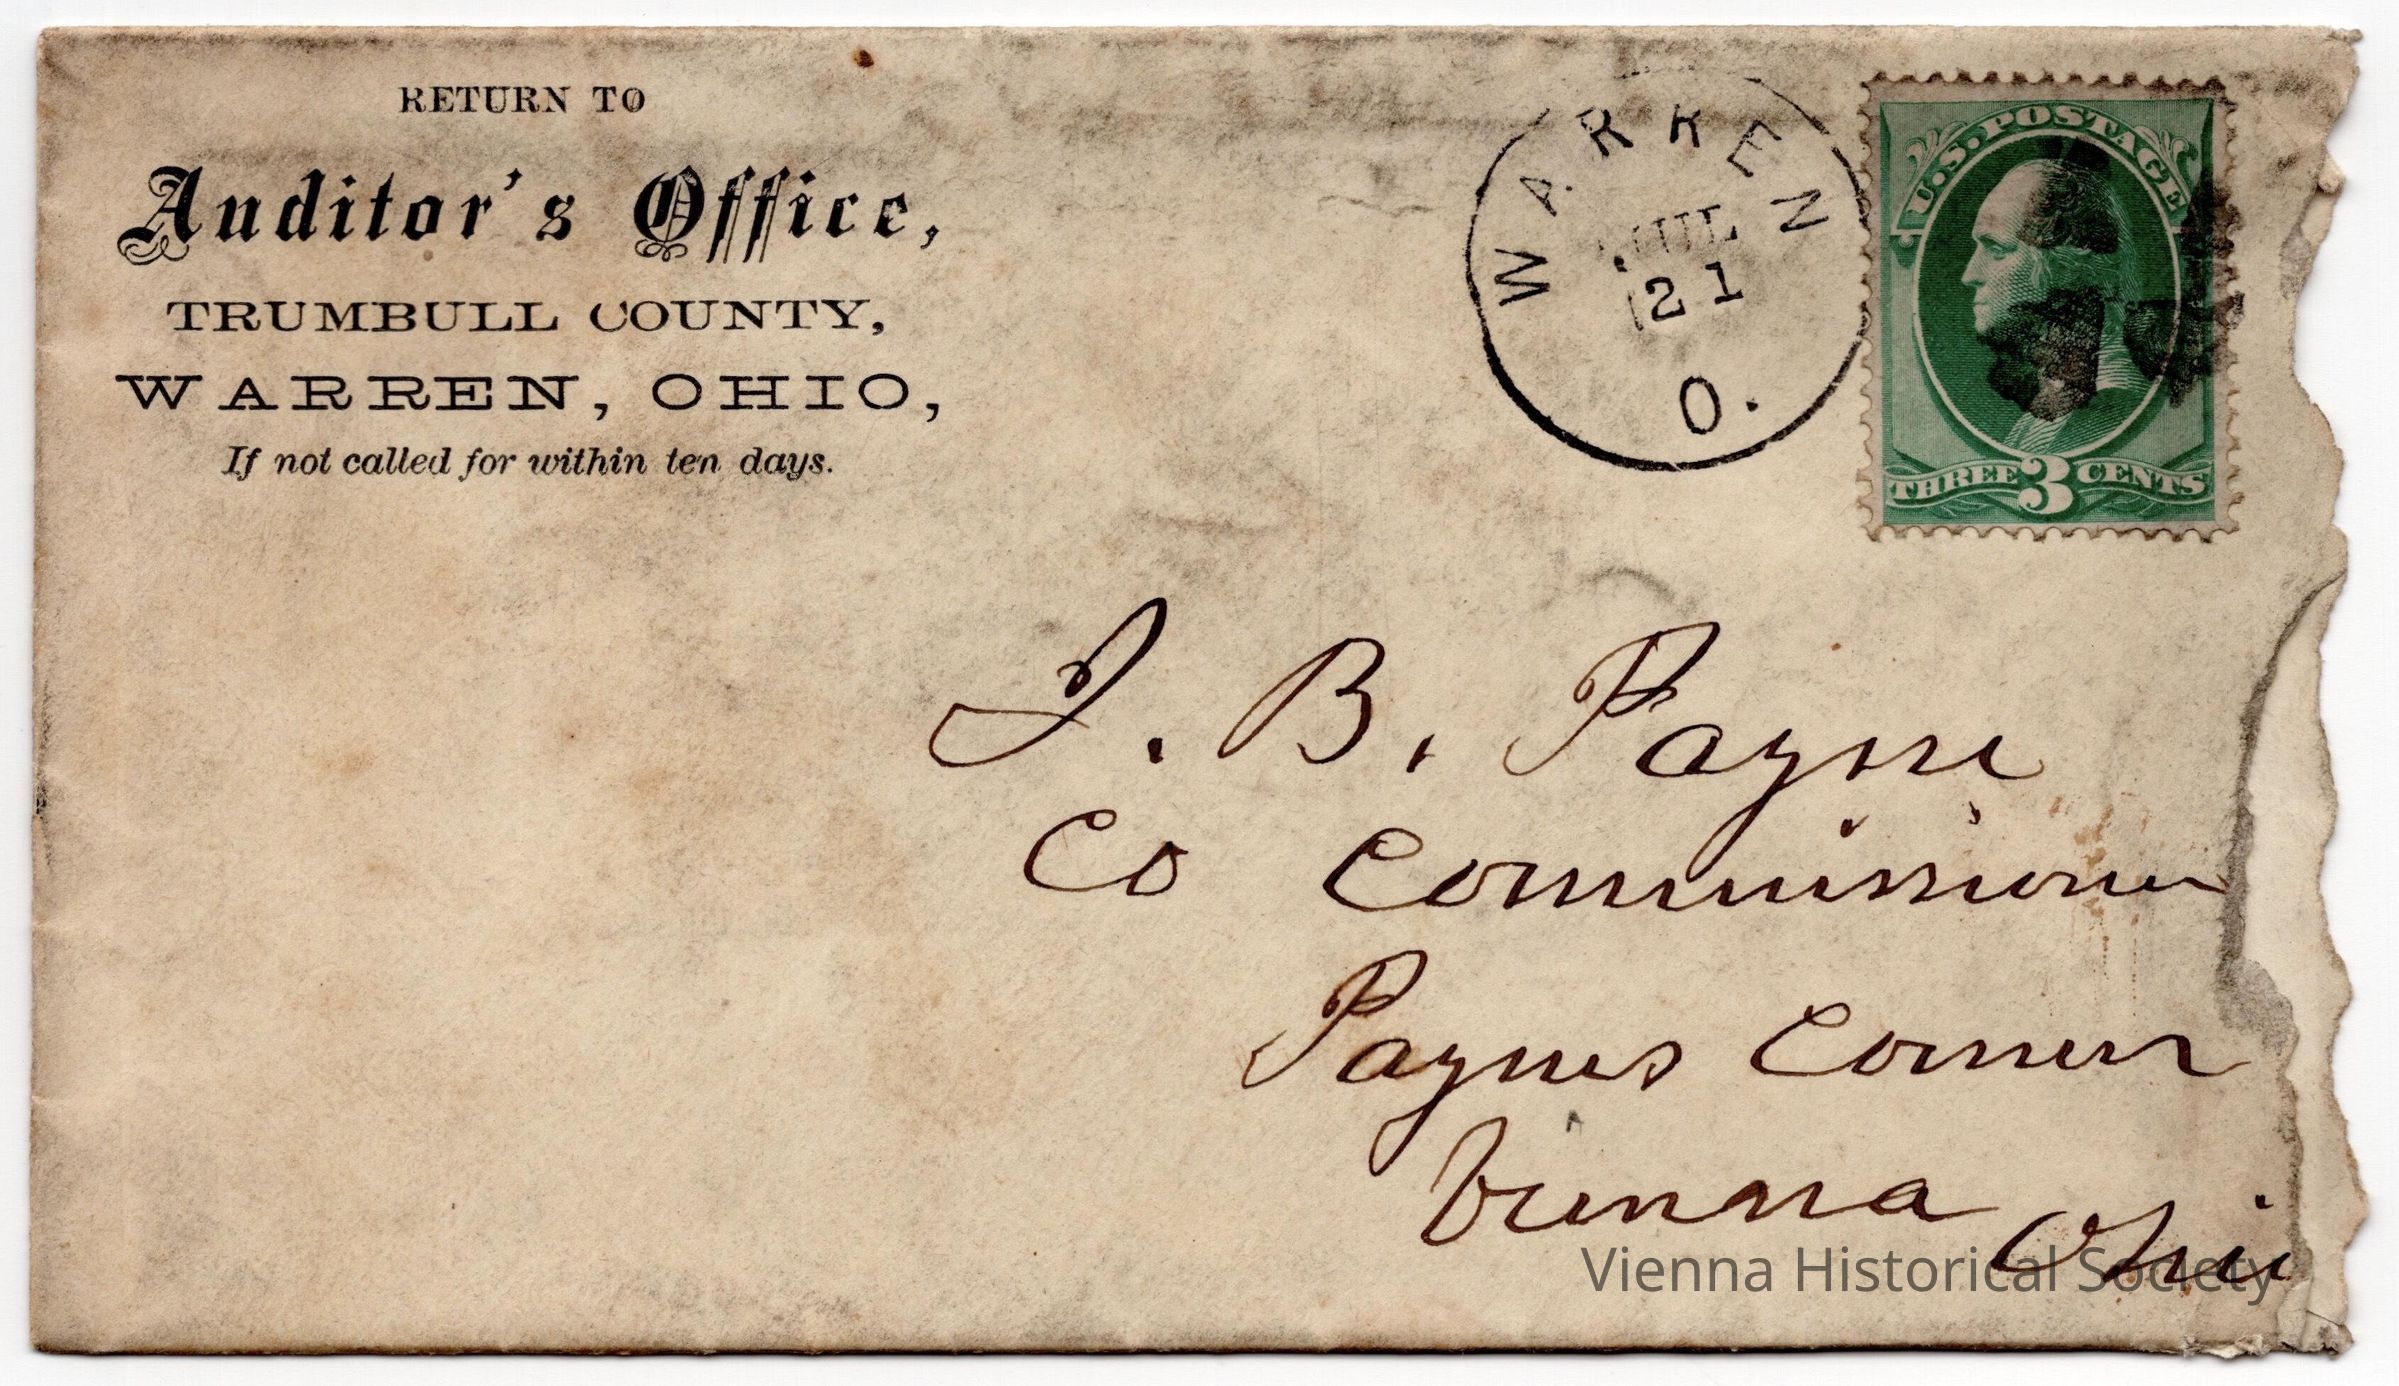 RETURN TO
Auditor's Office,
TRUMBULL COUNTY,
WARREN, OHIO,
If not called for within ten days.
WARREN
JUL
21
O.
U.S. POSTAGE
THREE 3 CENTS
I. B. Payne
Co Commissioner
Paynes Corners
Vienna Ohio
Vienna Historical Society